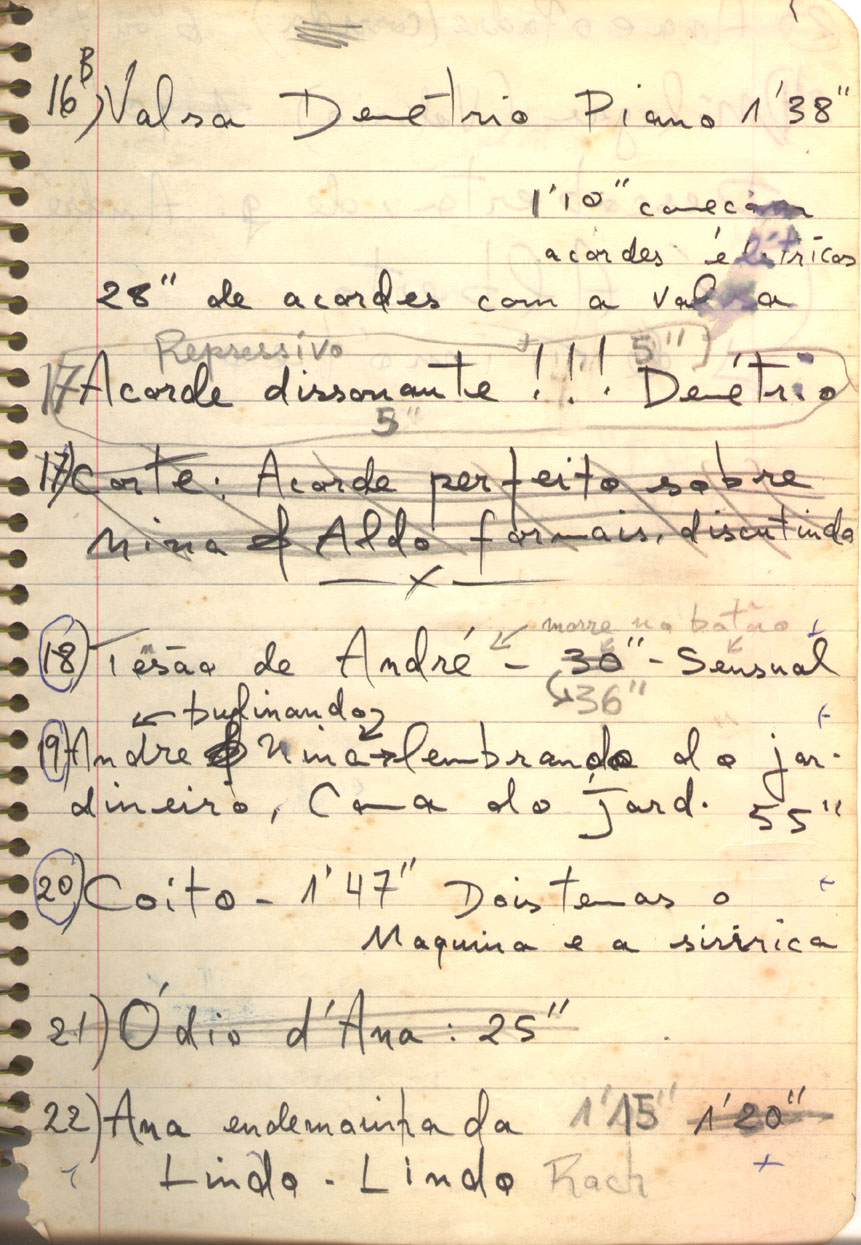 16B) Valsa Demétrio Piano 1'38"
1'10" começam
acordes elétricos
28" de acordes com a valsa
Repressivo 5"
17 Acorde dissonante !!! Demétrio
5"
17) Corte: Acorde perfeito sobre
Nina & Aldo formais, discutindo
— x —
morre no batão
18) Tesão de André - 30" - Sensual
36"
bulinando
19) Andre & Nina → lembrando do jar-
dineiro, Cama do Jard. 55"
20) Coito - 1'47" Dois temas o
Maquina e a siririca
21) Ódio d'Ana : 25"
22) Ana endemoinhada 1'15" 1'20"
Lindo - Lindo Rach